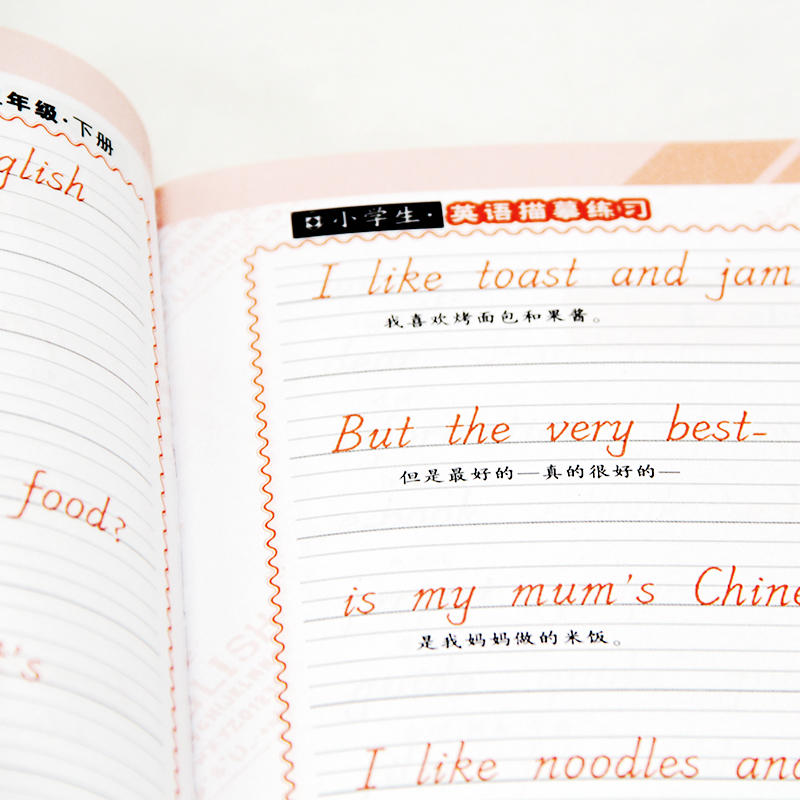 年级·下册
food?
小学生·英语描摹练习
I like toast and jam
我喜欢烤面包和果酱。
But the very best-
但是最好的—真的很好的—
is my mum's
是我妈妈做的米饭。
I like noodles and